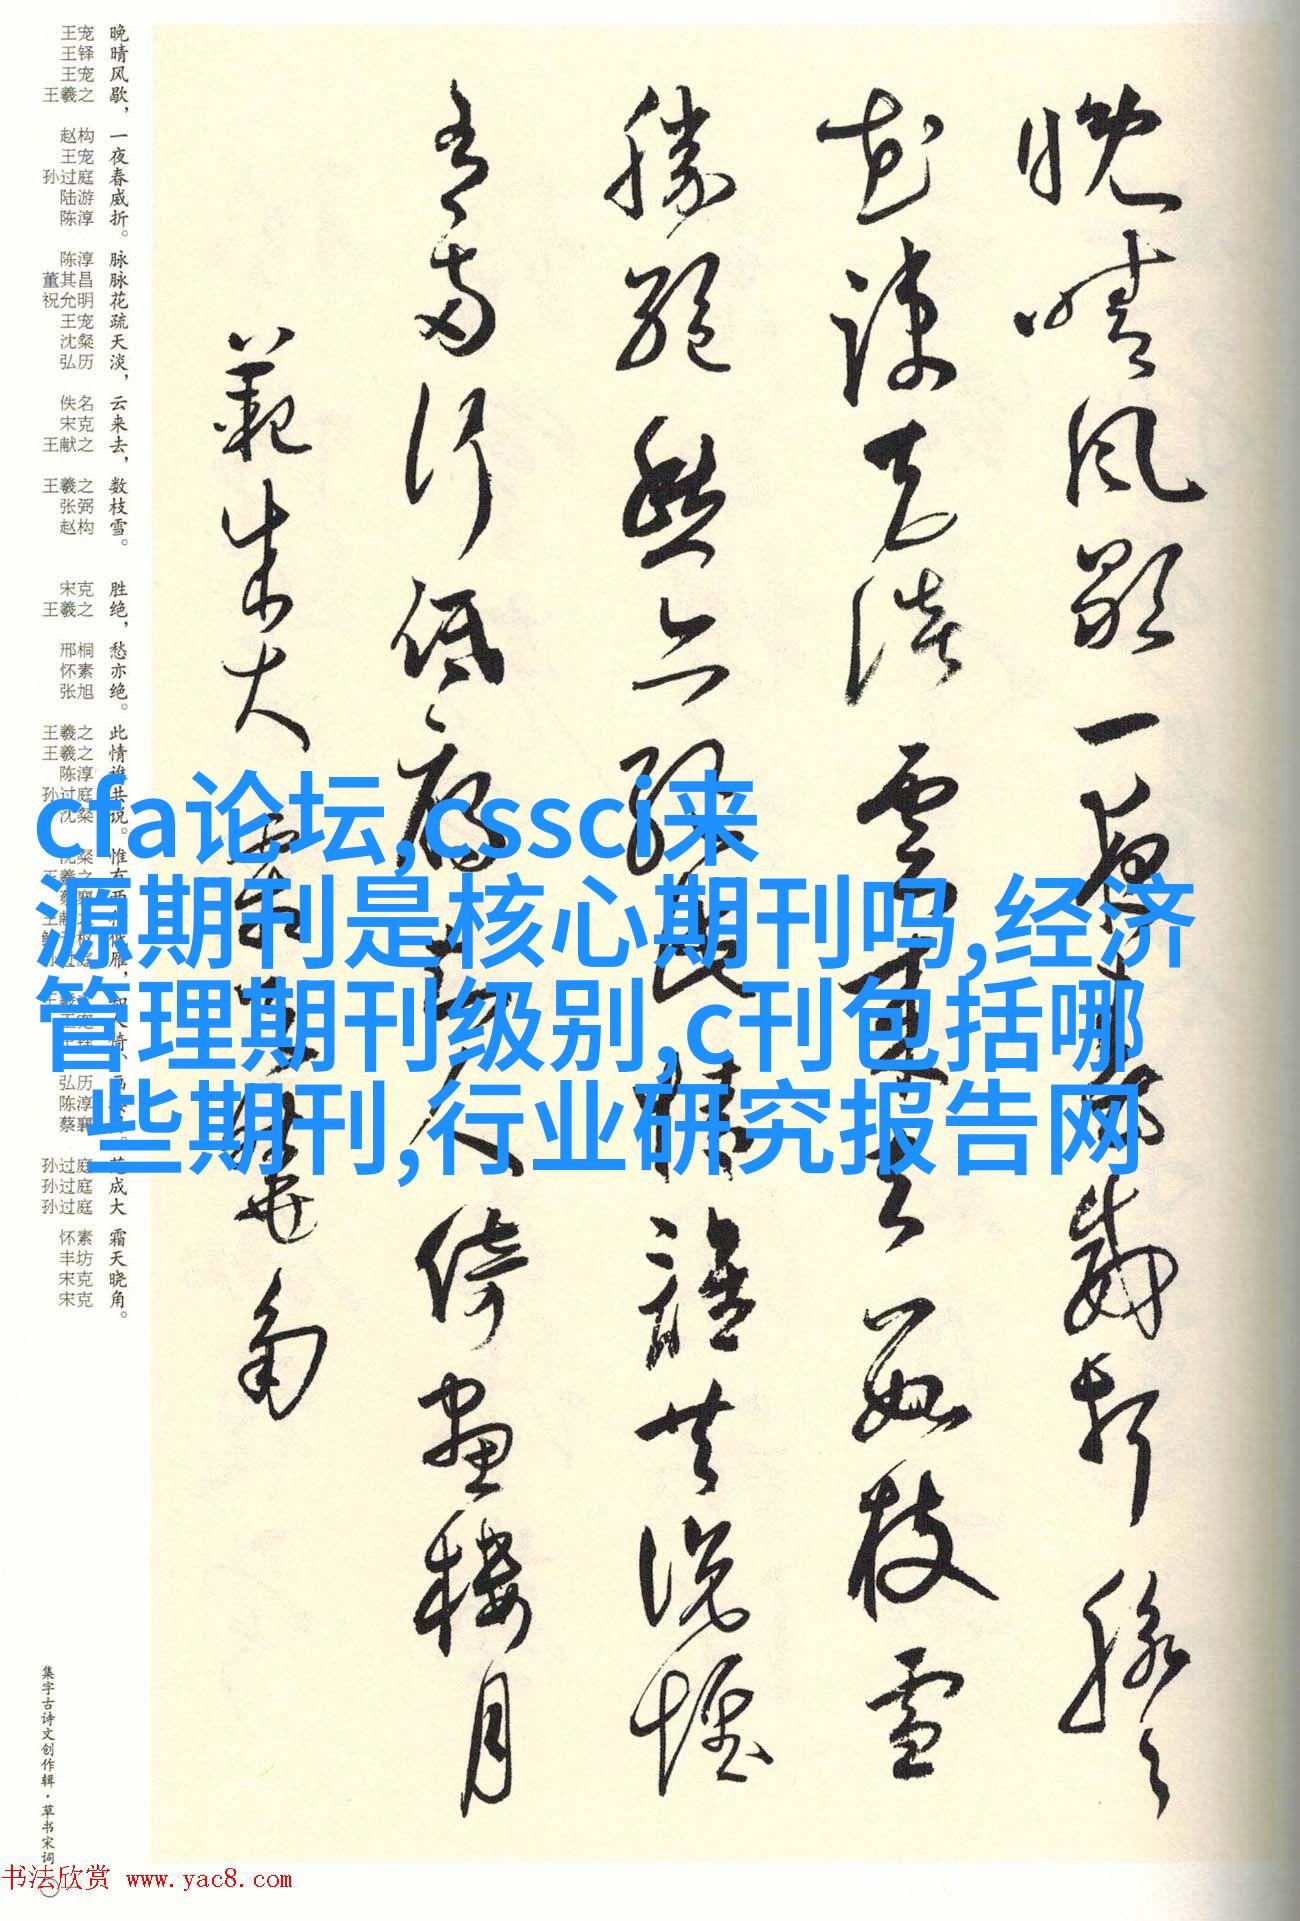 晚晴風歇一夜春威折脉々
花疎天淡雲来去数枝雪
勝絶愁亦絶此情誰共説惟
有两行低雁人倚画楼月
範成大霜天曉角
晚晴风歇，一夜春威折。脉脉花疏天淡，云来去，数枝雪。胜绝，愁亦绝。此情谁共说。惟有两低雁，知人倚、画。范成大霜天晓角。
王宠 王铎 王宠 王羲之 赵构 王宠 孙过庭 陆游 陈淳 陈淳 董其昌 祝允明 王宠 沈粲 弘历 佚名 宋克 王献之 王羲之 张弼 赵构 宋克 王羲之 邢桐 怀素 张旭 王羲之 王羲之 陈淳 孙过庭 沈粲 弘历 陈淳 蔡襄 孙过庭 孙过庭 孙过庭 怀素 丰坊 宋克 宋克
集字古诗文创作辑·草书宋词
cfa论坛,cssci来
源期刊是核心期刊吗,经济
管理期刊级别,c刊包括哪
些期刊,行业研究报告网
书法欣赏 www.yac8.com